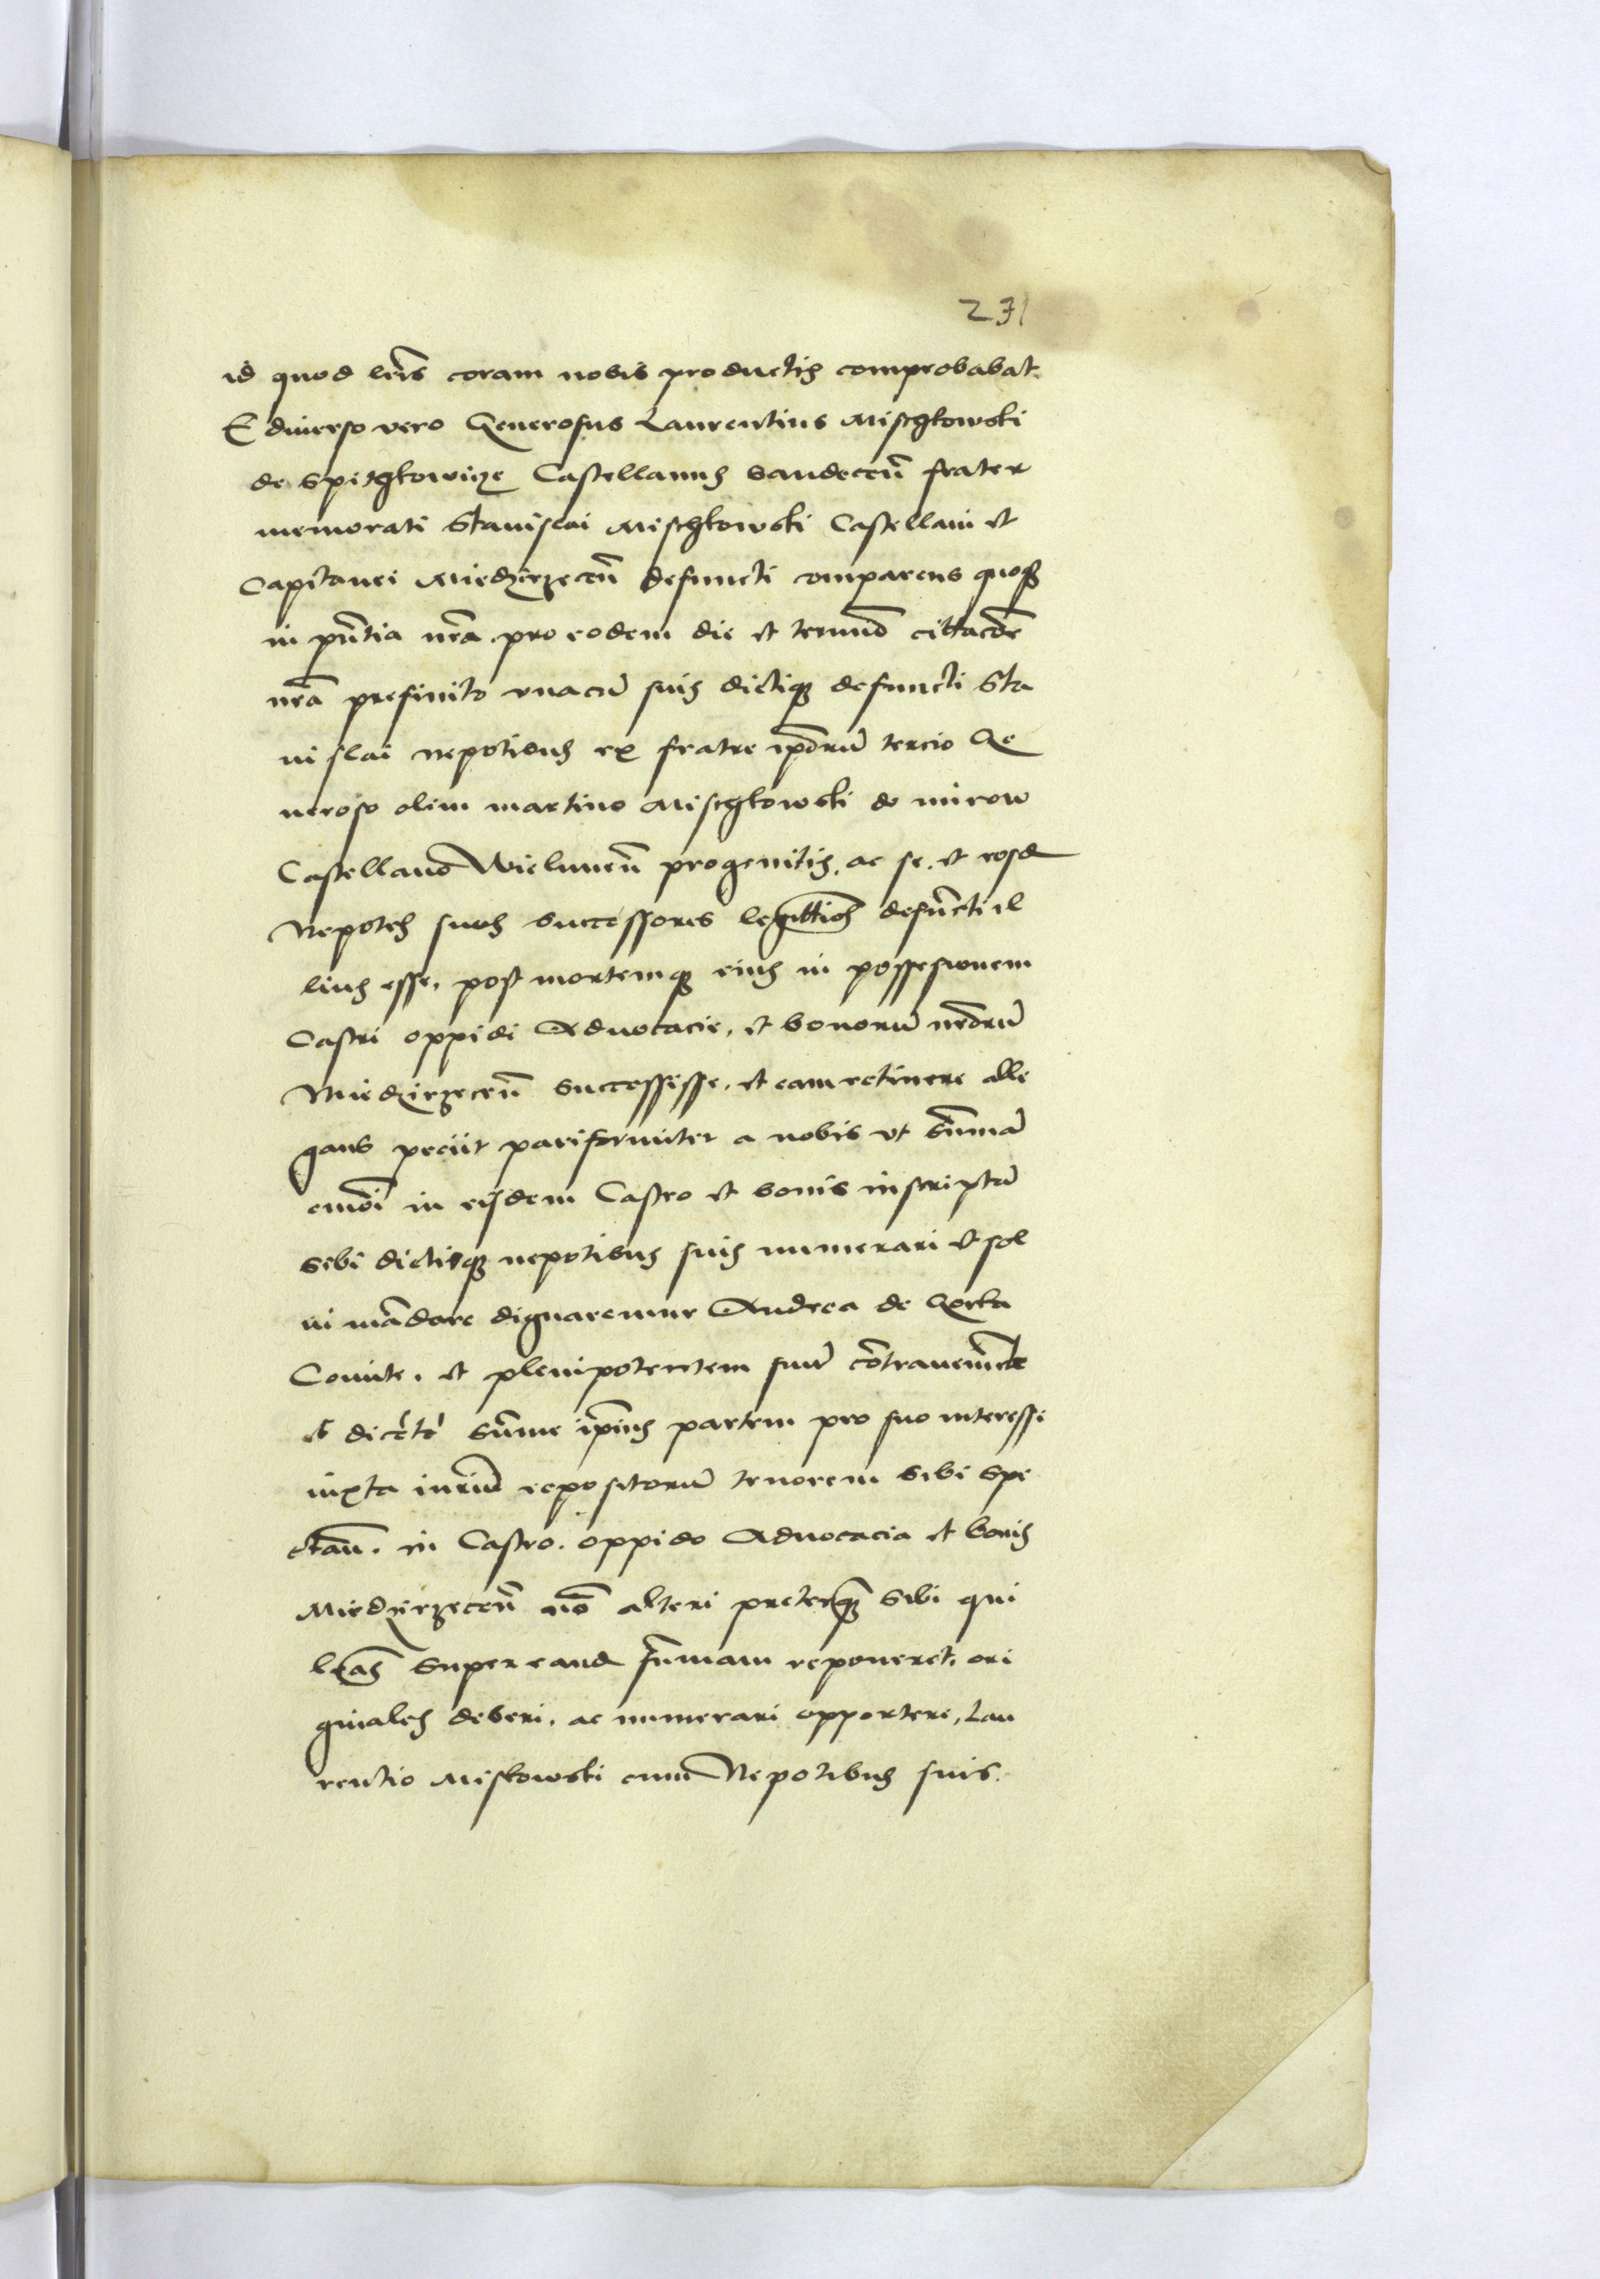 231
id quod lrĩs coram nobis productis comprobabat.
E diuerso vero Generosus Laurentius Mischkowski
de Spithkowicze Castellanus Sandeceñ frater
memorati Stanislai Mischkowski Castellani et
Capitanei Miedzirzeceñ defuncti comparens quoq
in pñtia nrã. pro eodem die et termĩo citta
nrã prefinito vnacũ suis dictiq defuncti Sta
nislai nepotibus ex fratre ipõrũ tercio Ge
neroso olim martino Mischkowski de mirow
Castellano Wielunen̄ progenitis. ac se. et eosd
Nepotes suos successores legitti defũcti il
lius esse. post mortemq eius in possesionem
Castri oppidi Aduocacie. et bonorũ
Miedzirzeceñ successisse. et eam retinere alle
gans peciit pariformiter a nobis vt Sũmã
in eisdem Castro et bonis inscriptã
sibi dictisq nepotibus suis numerari et sol
ui mãdare dignaremur Andrea de Gorka
Comite. et plenipotentem suũ cõtraueniente
et Sũme ip̃ius partem pro suo interesse
iuxta repositorũ tenorem sibi spe
ctañ. in Castro. oppido Aduocacia et bonis
Miedzirzeceñ nõ alteri preterq sibi qui
lrãs super eand sũmam reponeret. ori
ginales deberi. ac numerari opportere, Lau
rentio Miskowski cum Nepotibus suis.